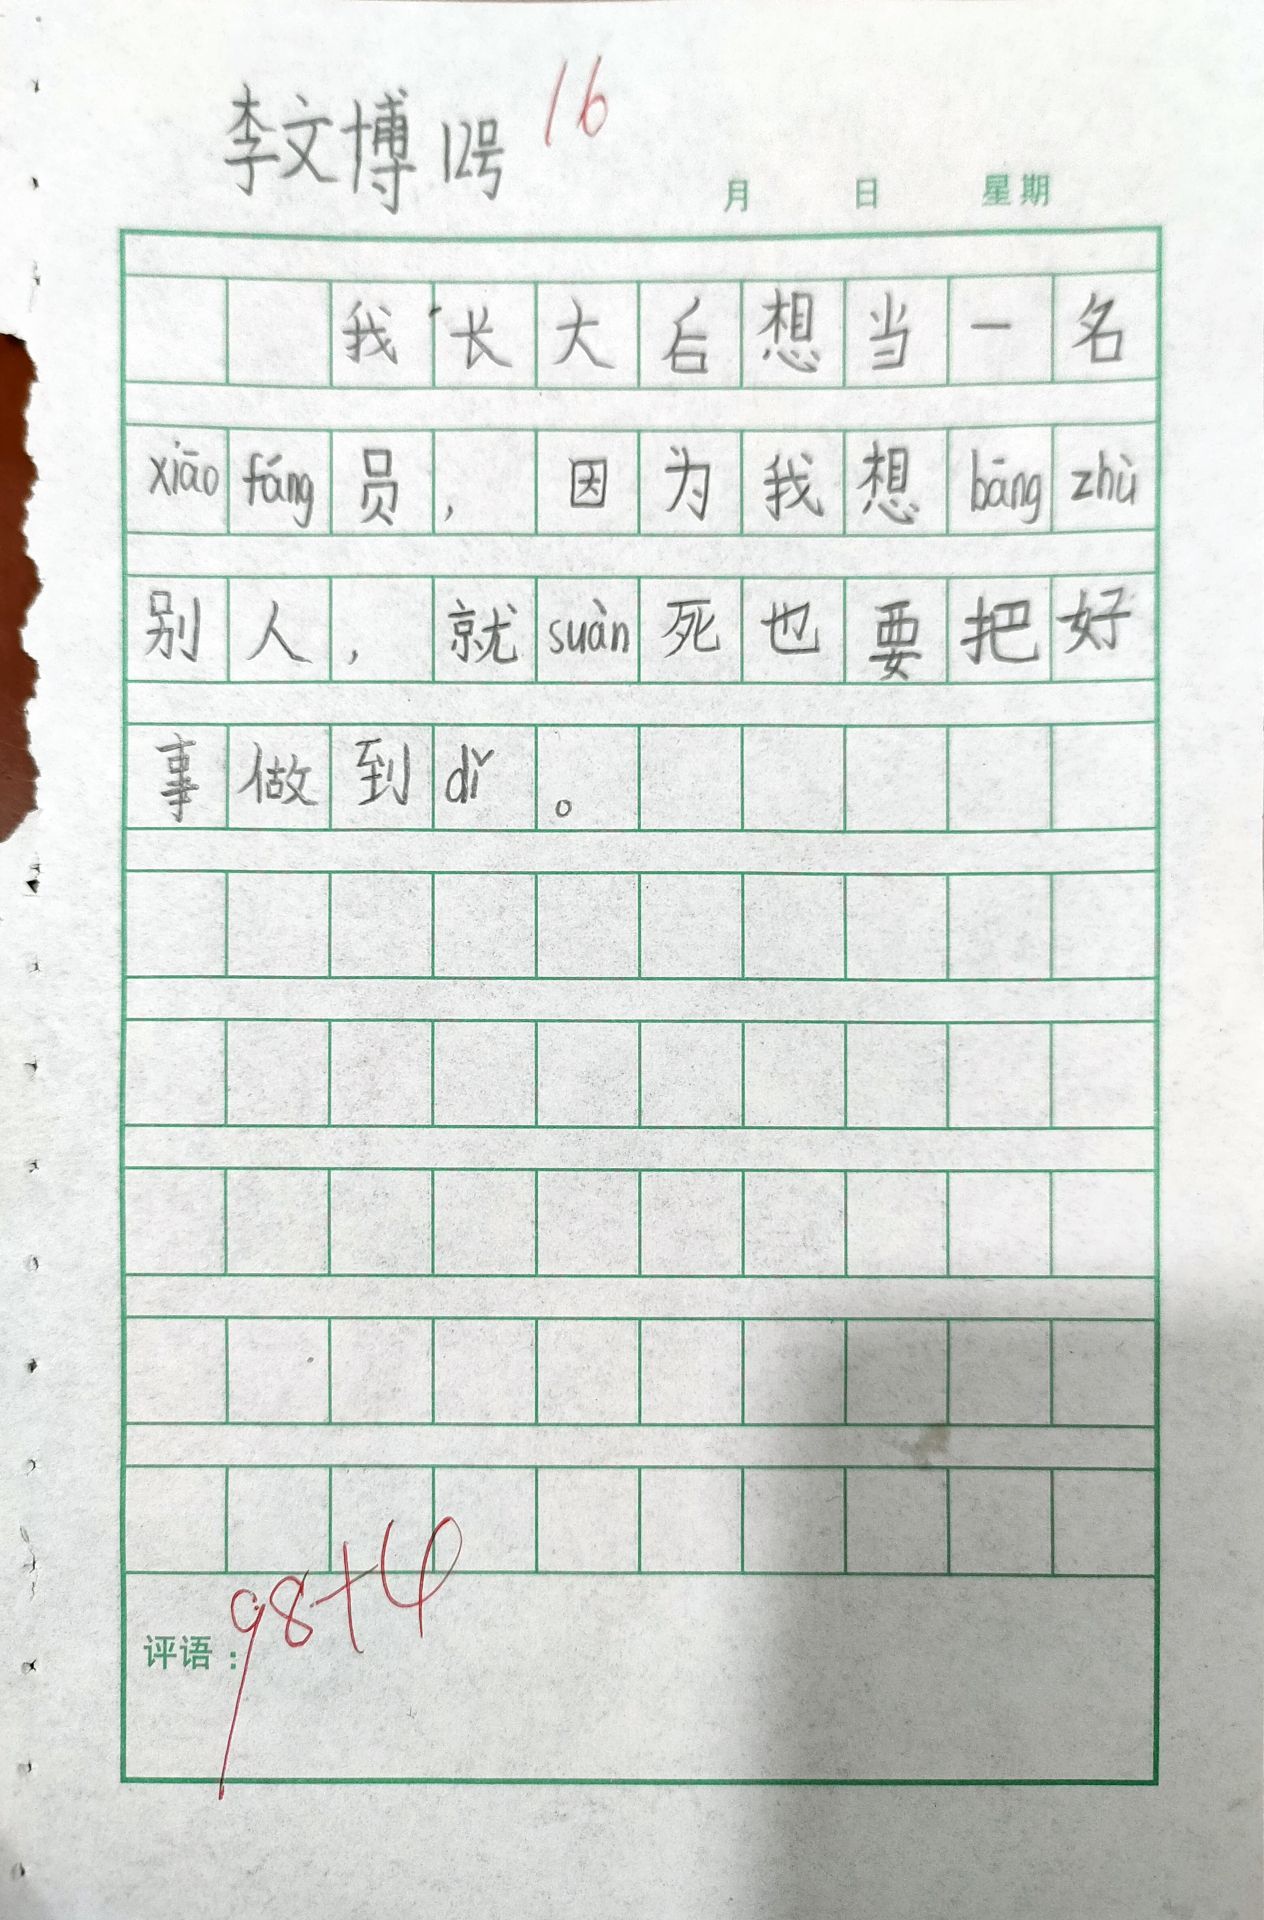 李文博 12号 16
月 日 星期
我长大后想当一名
xiāo fáng 员，因为我想 bāng zhù
别人，就 suàn 死也要把好
事做到 dǐ 。
评语：98+4